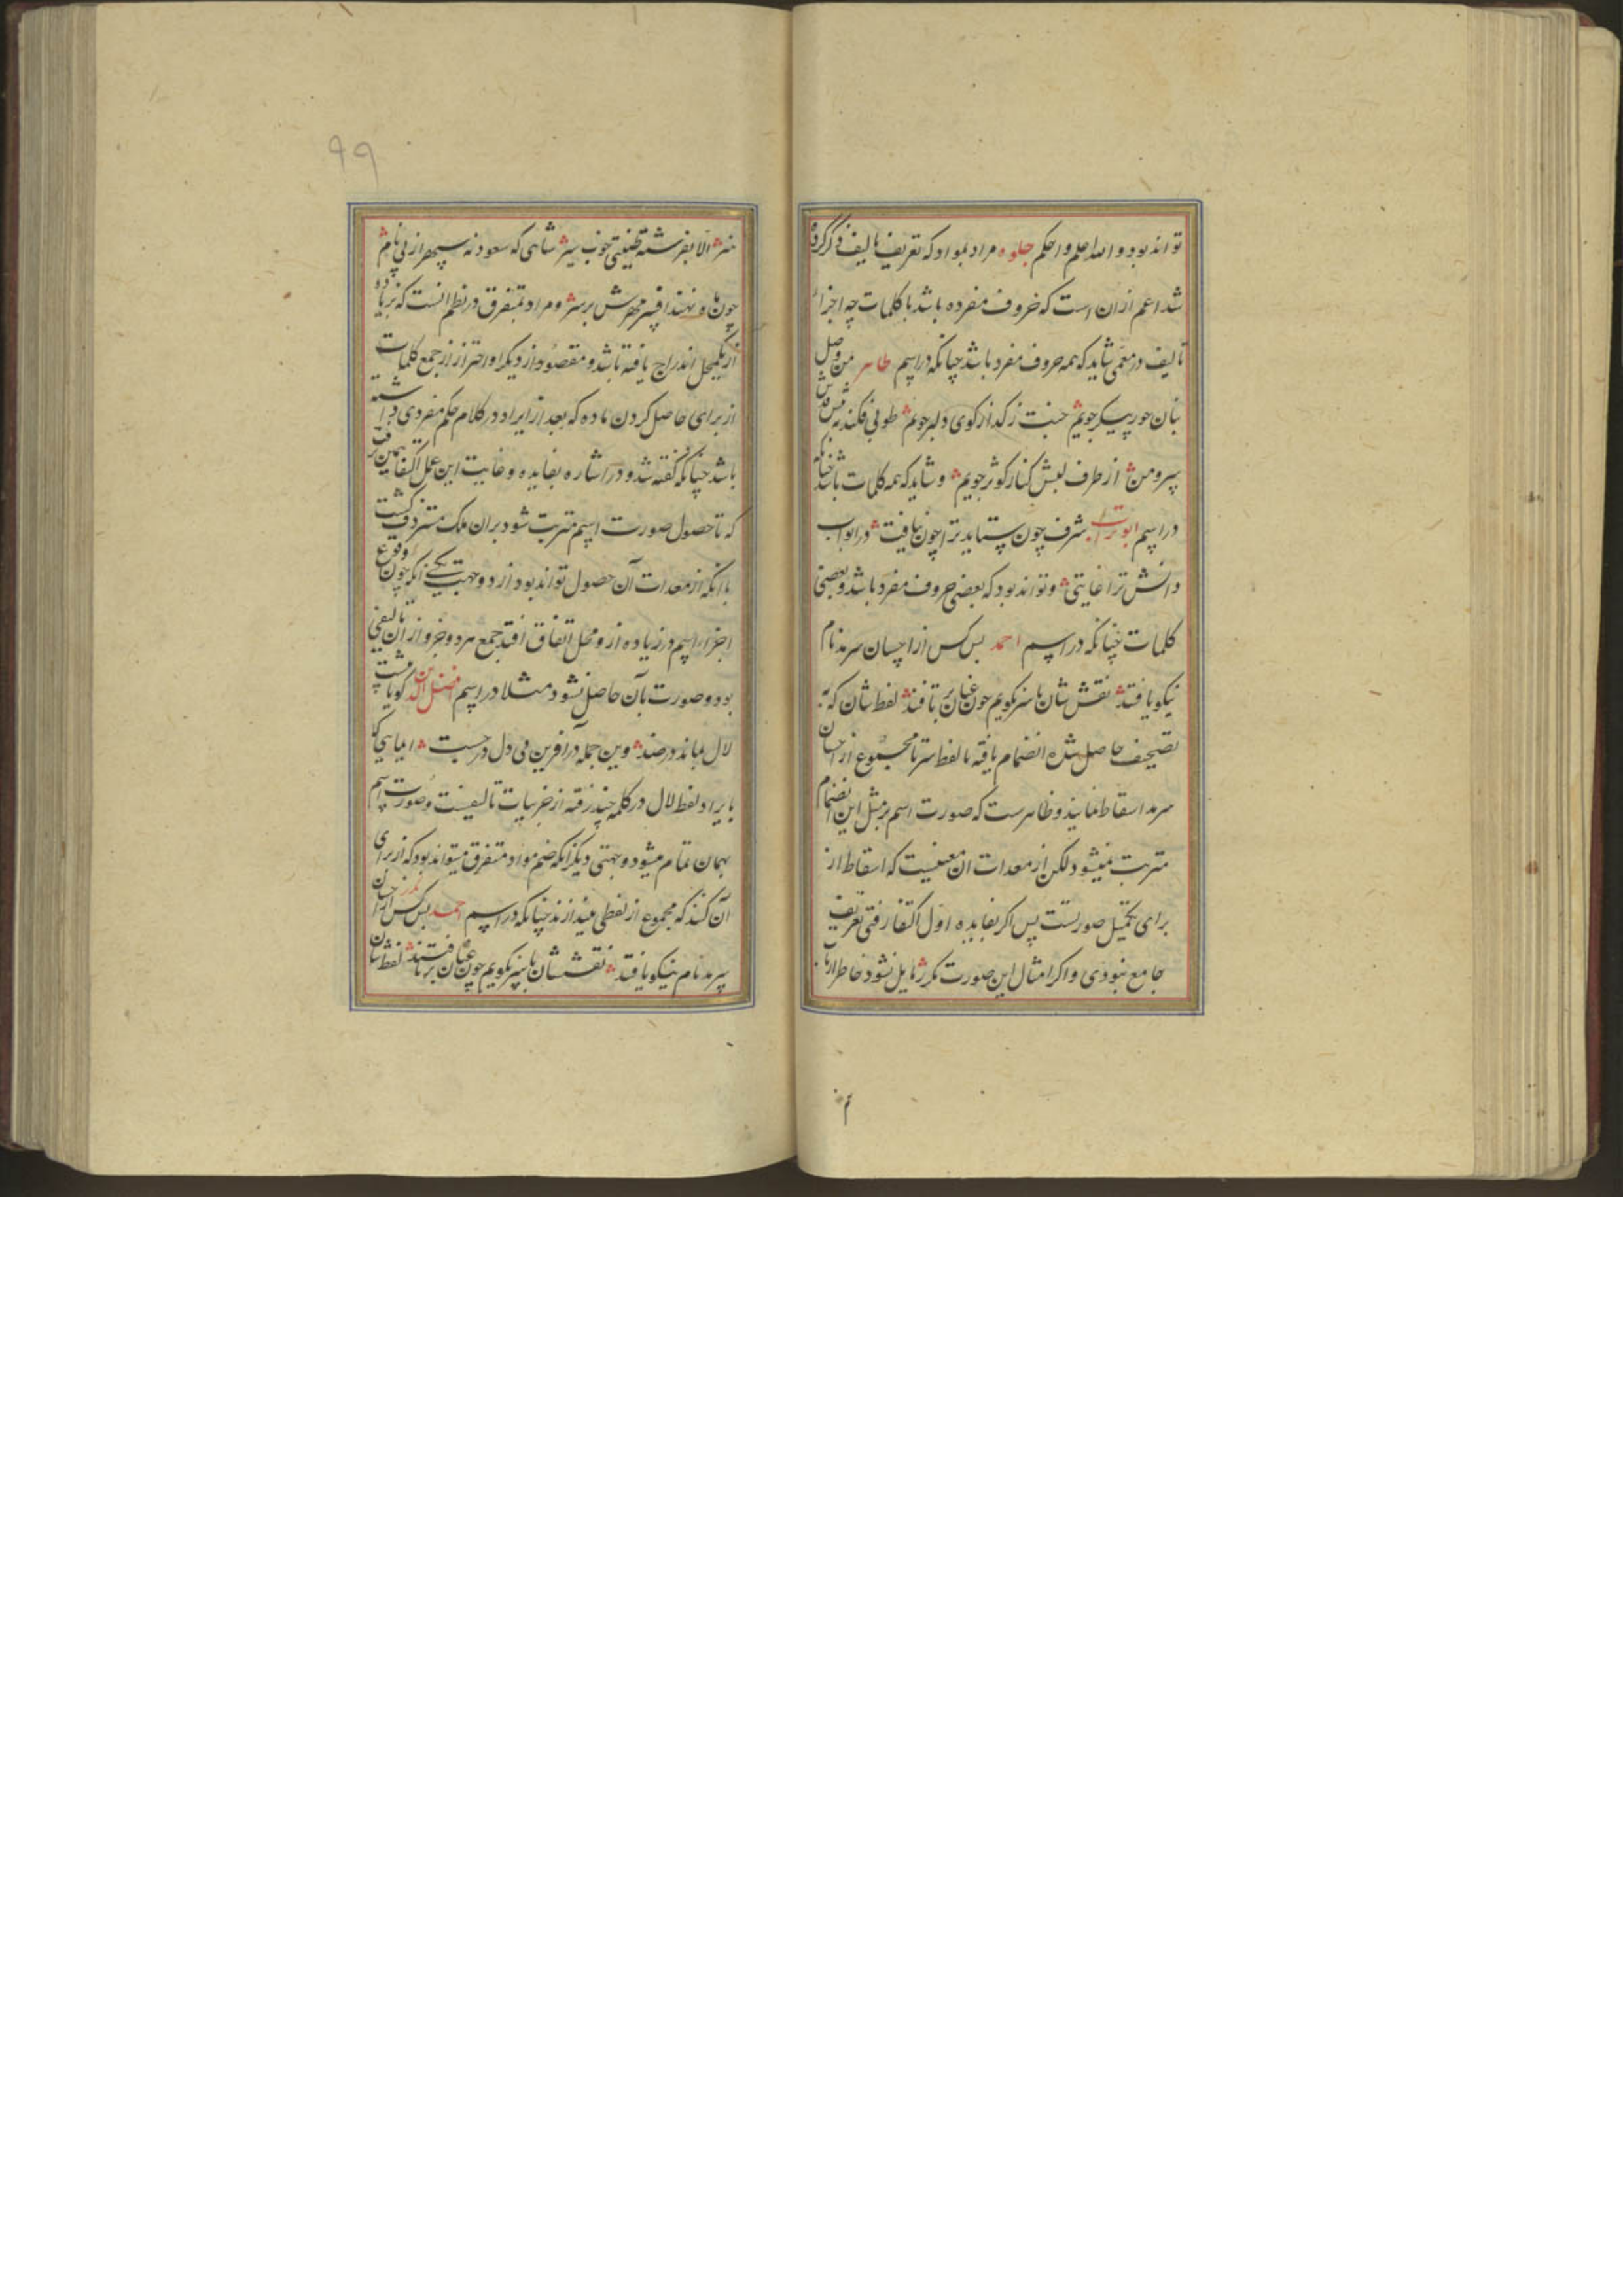 تواند بود و الله اعلم و احکم جلوه مراد بمواد که تعریف تالیف ذکر کرده
شد اعم ازان است که حروف مفرده باشد یا کلمات چه اجزاء
تالیف در معمی شاید که همه حروف مفرد باشد چنانکه در اسم طاهر من وصل
بتان حور پیکر جویم جنت ز کذار کوی دلبر جویم طوبی فکند
سرو من از طرف لبش کنار کوثر جویم و شاید که همه کلمات باشد چنانکه
در اسم ابوتراب شرف چون ستاید ترا چون نیافت در ابواب
دانش ترا غایتی و تواند بود که بعضی حروف مفرد باشد و بعضی
کلمات چنانکه در اسم احمد بس کس از احسان سرمد نام
نیکو یافتند نقش شان با سر نکویم چون عنان بر تافتند لفظ شان که به
تصحیف حاصل شده انضمام یافته با لفظ سر تا مجموع از احسان
سرمد اسقاط نمایند و ظاهرست که صورت اسم بر مثل این انضمام
مترتب نمیشود لکن از معدات ان معنیست که اسقاط از
برای تکمیل صورتست پس اکر بفایده اول اکتفا رفتی تعریف
جامع نبودی و اکر امثال این صورت مکرر زایل نشود خاطر ازنا
۹۹
الا بفرشته طینتی خوب سیر شاهی که سعود نه سپهر از پی نام
چون ها و نهند افسر مهرش بر سر و مراد بمتفرق در نظم انست که نه زیاده
از یکمحل اندراج یافته باشد و مقصود از دیکر او احتراز از جمع کلمات
از برای حاصل کردن ماده که بعد از ایراد در کلام حکم مفردی داشته
باشد چنانکه گفته شد و در اشاره بفایده و غایت این عمل اکتفا بهمین نرفت
که تا حصول صورت اسم مترتب شود بران ملک مستردف کشت
با انکه از معدات آن حصول تواند بود از دو جهت یکی انکه چون وقوع
اجزاء اسم در زیاده از دو محل اتفاق افتد جمع هر دو جزو از ان تالیفی
بود و صورت بآن حاصل نشود مثلا در اسم افضل الدین کویا
لال بماند در صد وین جمله در افرین فی دل در حست
بایراد لفظ لال در کلمه چند رفته از جزییات تالیفست و صورت اسم
بهمان تمام میشود و جهتی دیکر انکه ضم مواد متفرق میتواند بود که از برای
آن کنند که مجموع از لفظی بیندازند چنانکه در اسم احمد بس کس از احسان
سرمد نام نیکو یافتند نقش شان با سر نکویم چون عنان بر تافتند لفظ شان